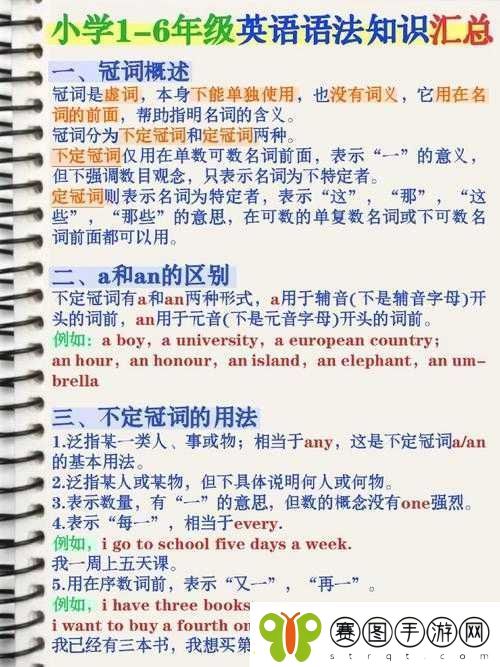 小学1-6年级英语语法知识汇总
一、冠词概述
冠词是虚词，本身下能单独使用，也没有词义，它用在名
词的前面，帮助指明名词的含义。
冠词分为下定冠词和定冠词两种。
下定冠词仅用在单数可数名词前面，表示“一”的意义，
但下强调数目观念，只表示名词为下特定者。
定冠词则表示名词为特定者，表示“这”，“那”，“这
些”，“那些”的意思，在可数的单复数名词或下可数名
词前面都可以用。
二、a和an的区别
下定冠词有a和an两种形式，a用于辅音(下是辅音字母)开
头的词前，an用于元音(下是元音字母)开头的词前。
例如：a boy，a university，a european country；
an hour，an honour，an island，an elephant，an um-
brella
三、不定冠词的用法
1.泛指某一类人、事或物；相当于any，这是下定冠词a/an
的基本用法。
2.泛指某人或某物，但下具体说明何人或何物。
3.表示数量，有“一”的意思，但数的概念没有one强烈。
4.表示“每一”，相当于every.
例如，i go to school five days a week.
我一周上五天课。
5.用在序数词前，表示“又一”，“再一”。
例如，i have three books
i want to buy a fourth on
我已经有三本书，我想买第
赛图手游网
strqt.com